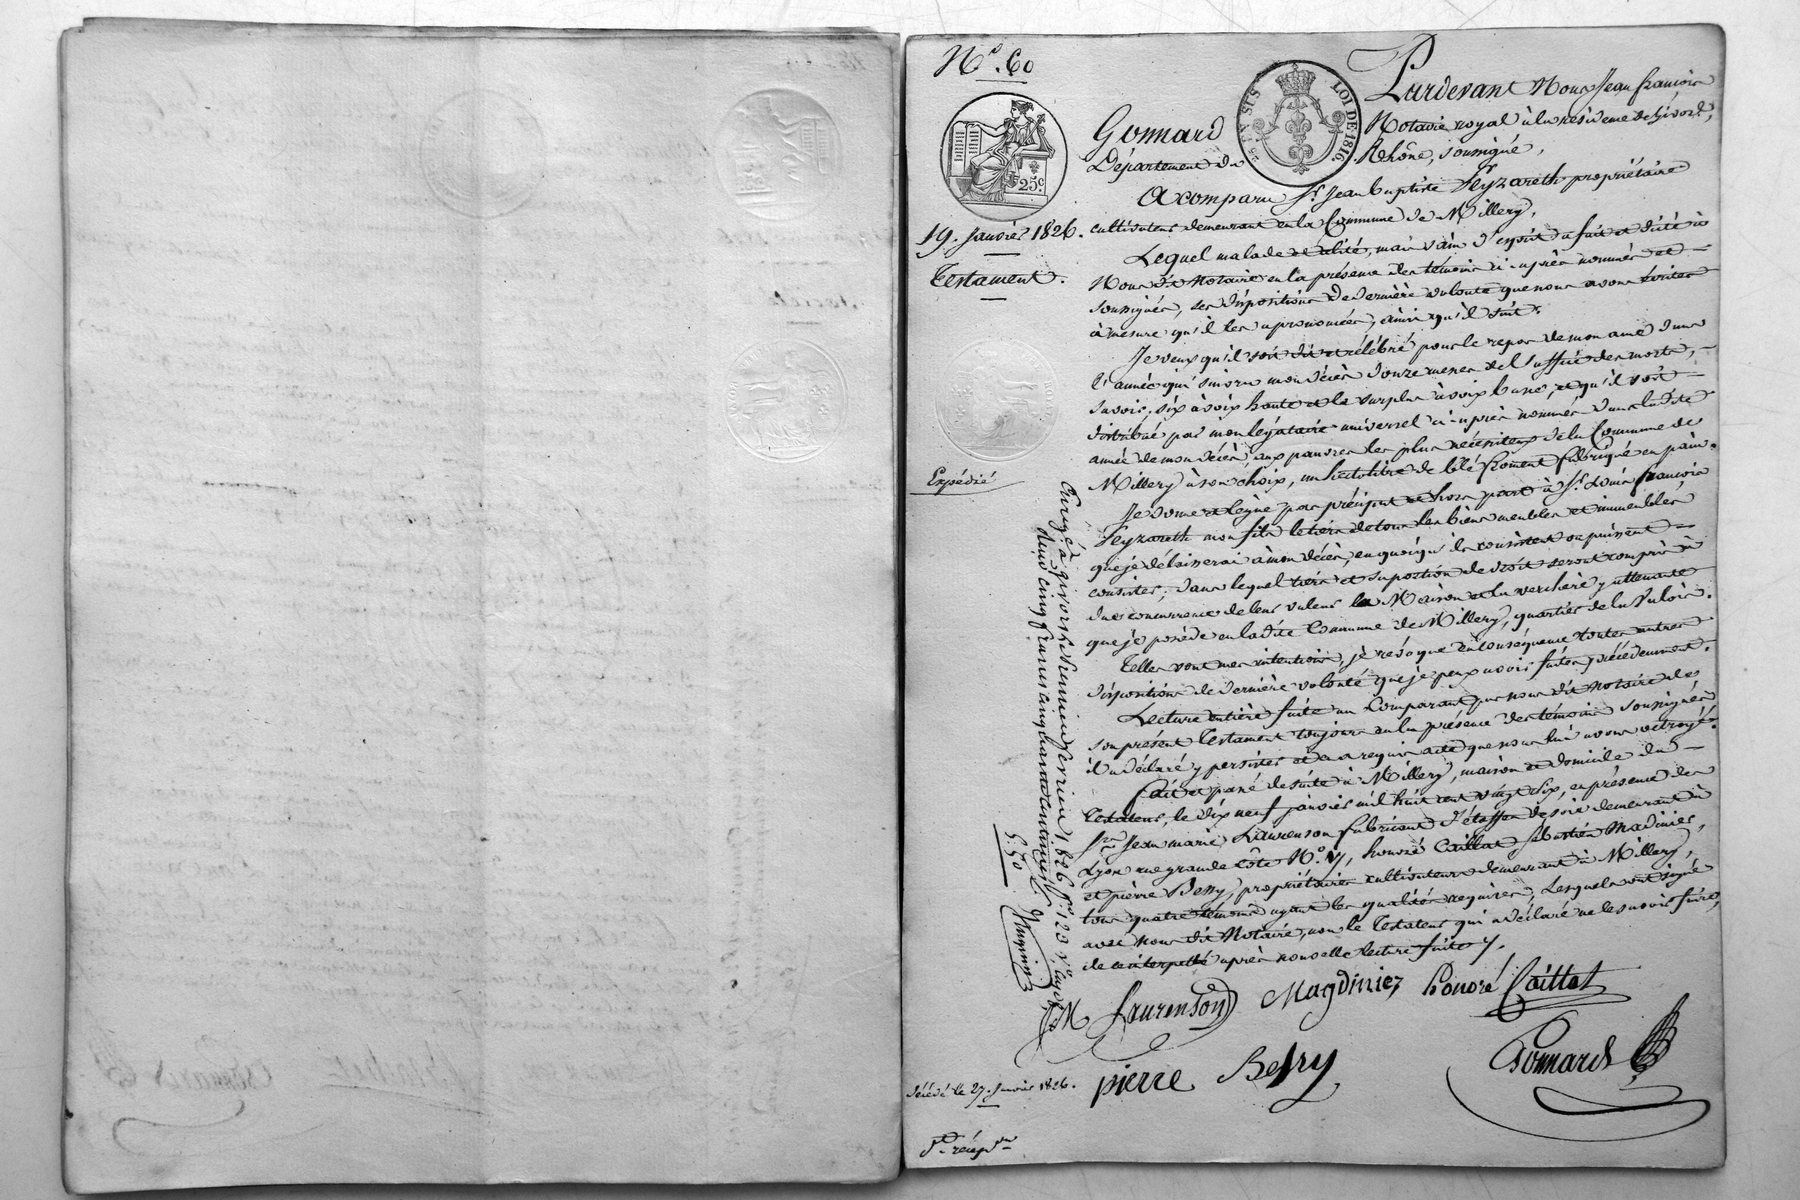 N.o 60
Pardevant Nous Jean François
Gonnard Notaire royal à la résidence de Givors,
Département du Rhône, soussigné,
25 EN SUS
LOI DE 1816.
25c
A comparu Sr. Jean Baptiste Peyzareth propriétaire
19. Janvier 1826.
cultivateur demeurant en la Commune de Millery,
Testament.
Lequel malade et alité, mais sain d'esprit a fait et dicté à
Nous dit Notaire en la présence des témoins ci-après nommés et
soussignés, ses dispositions de dernière volonté que nous avons écrites
à mesure qu'il les a prononcées, ainsi qu'il suit.
Je veux qu'il soit dit et célébré pour le repos de mon ame dans
l'année qui suivra mon décès douze messes de l'office des morts,
savoir, six à voix haute et le surplus à voix basse, et qu'il soit
distribué par mon légataire universel ci-après nommé dans ladite
année de mon décès, aux pauvres les plus nécessiteux de la Commune de
Expédié
Millery à son choix, un hectolitre de blé froment fabriqué en pain.
Je donne et lègue par préciput et hors part à Sr. Louis François
Peyzareth mon fils le tiers de tous les biens meubles et immeubles
que je délaisserai à mon décès, en quoiqu'ils consistent ou puissent
consister; dans lequel tiers et sa portion de droit seront compris à
due concurrence de leur valeur la Maison et la verchère y attenante
que je possède en ladite Commune de Millery, quartier de la
Telles sont mes intentions, je révoque en conséquence toutes autres
dispositions de dernière volonté que je peux avoir faites précédemment.
Lecture entière faite au Comparant par nous dit Notaire de
son présent Testament toujours en la présence des témoins soussignés
il a déclaré y persister et en a requis acte que nous lui avons octroyé.
Fait et passé de suite à Millery, maison et domicile du
Testateur, le dix neuf janvier mil huit cent vingt six, en présence de
Srs. Jean marie Laurenson fabricant d'étoffes de soie demeurant à
Lyon rue grande côte No. honoré Caillat Sébastien Madinier,
et pierre Bessy, propriétaires cultivateurs demeurant à Millery,
tous quatre témoins ayant les qualités requises, Lesquels ont signé
avec nous dit Notaire, non le Testateur qui a déclaré ne le savoir faire,
de ce interpellé après nouvelle lecture faite
Enregé à Givors le 1826 fo. 123
Reçu cinq francs cinquante centimes
5.50
JM Laurenson Magdinier honoré Caillat
pierre Bessy Gonnard
décédé le 27. Janvier 1826.